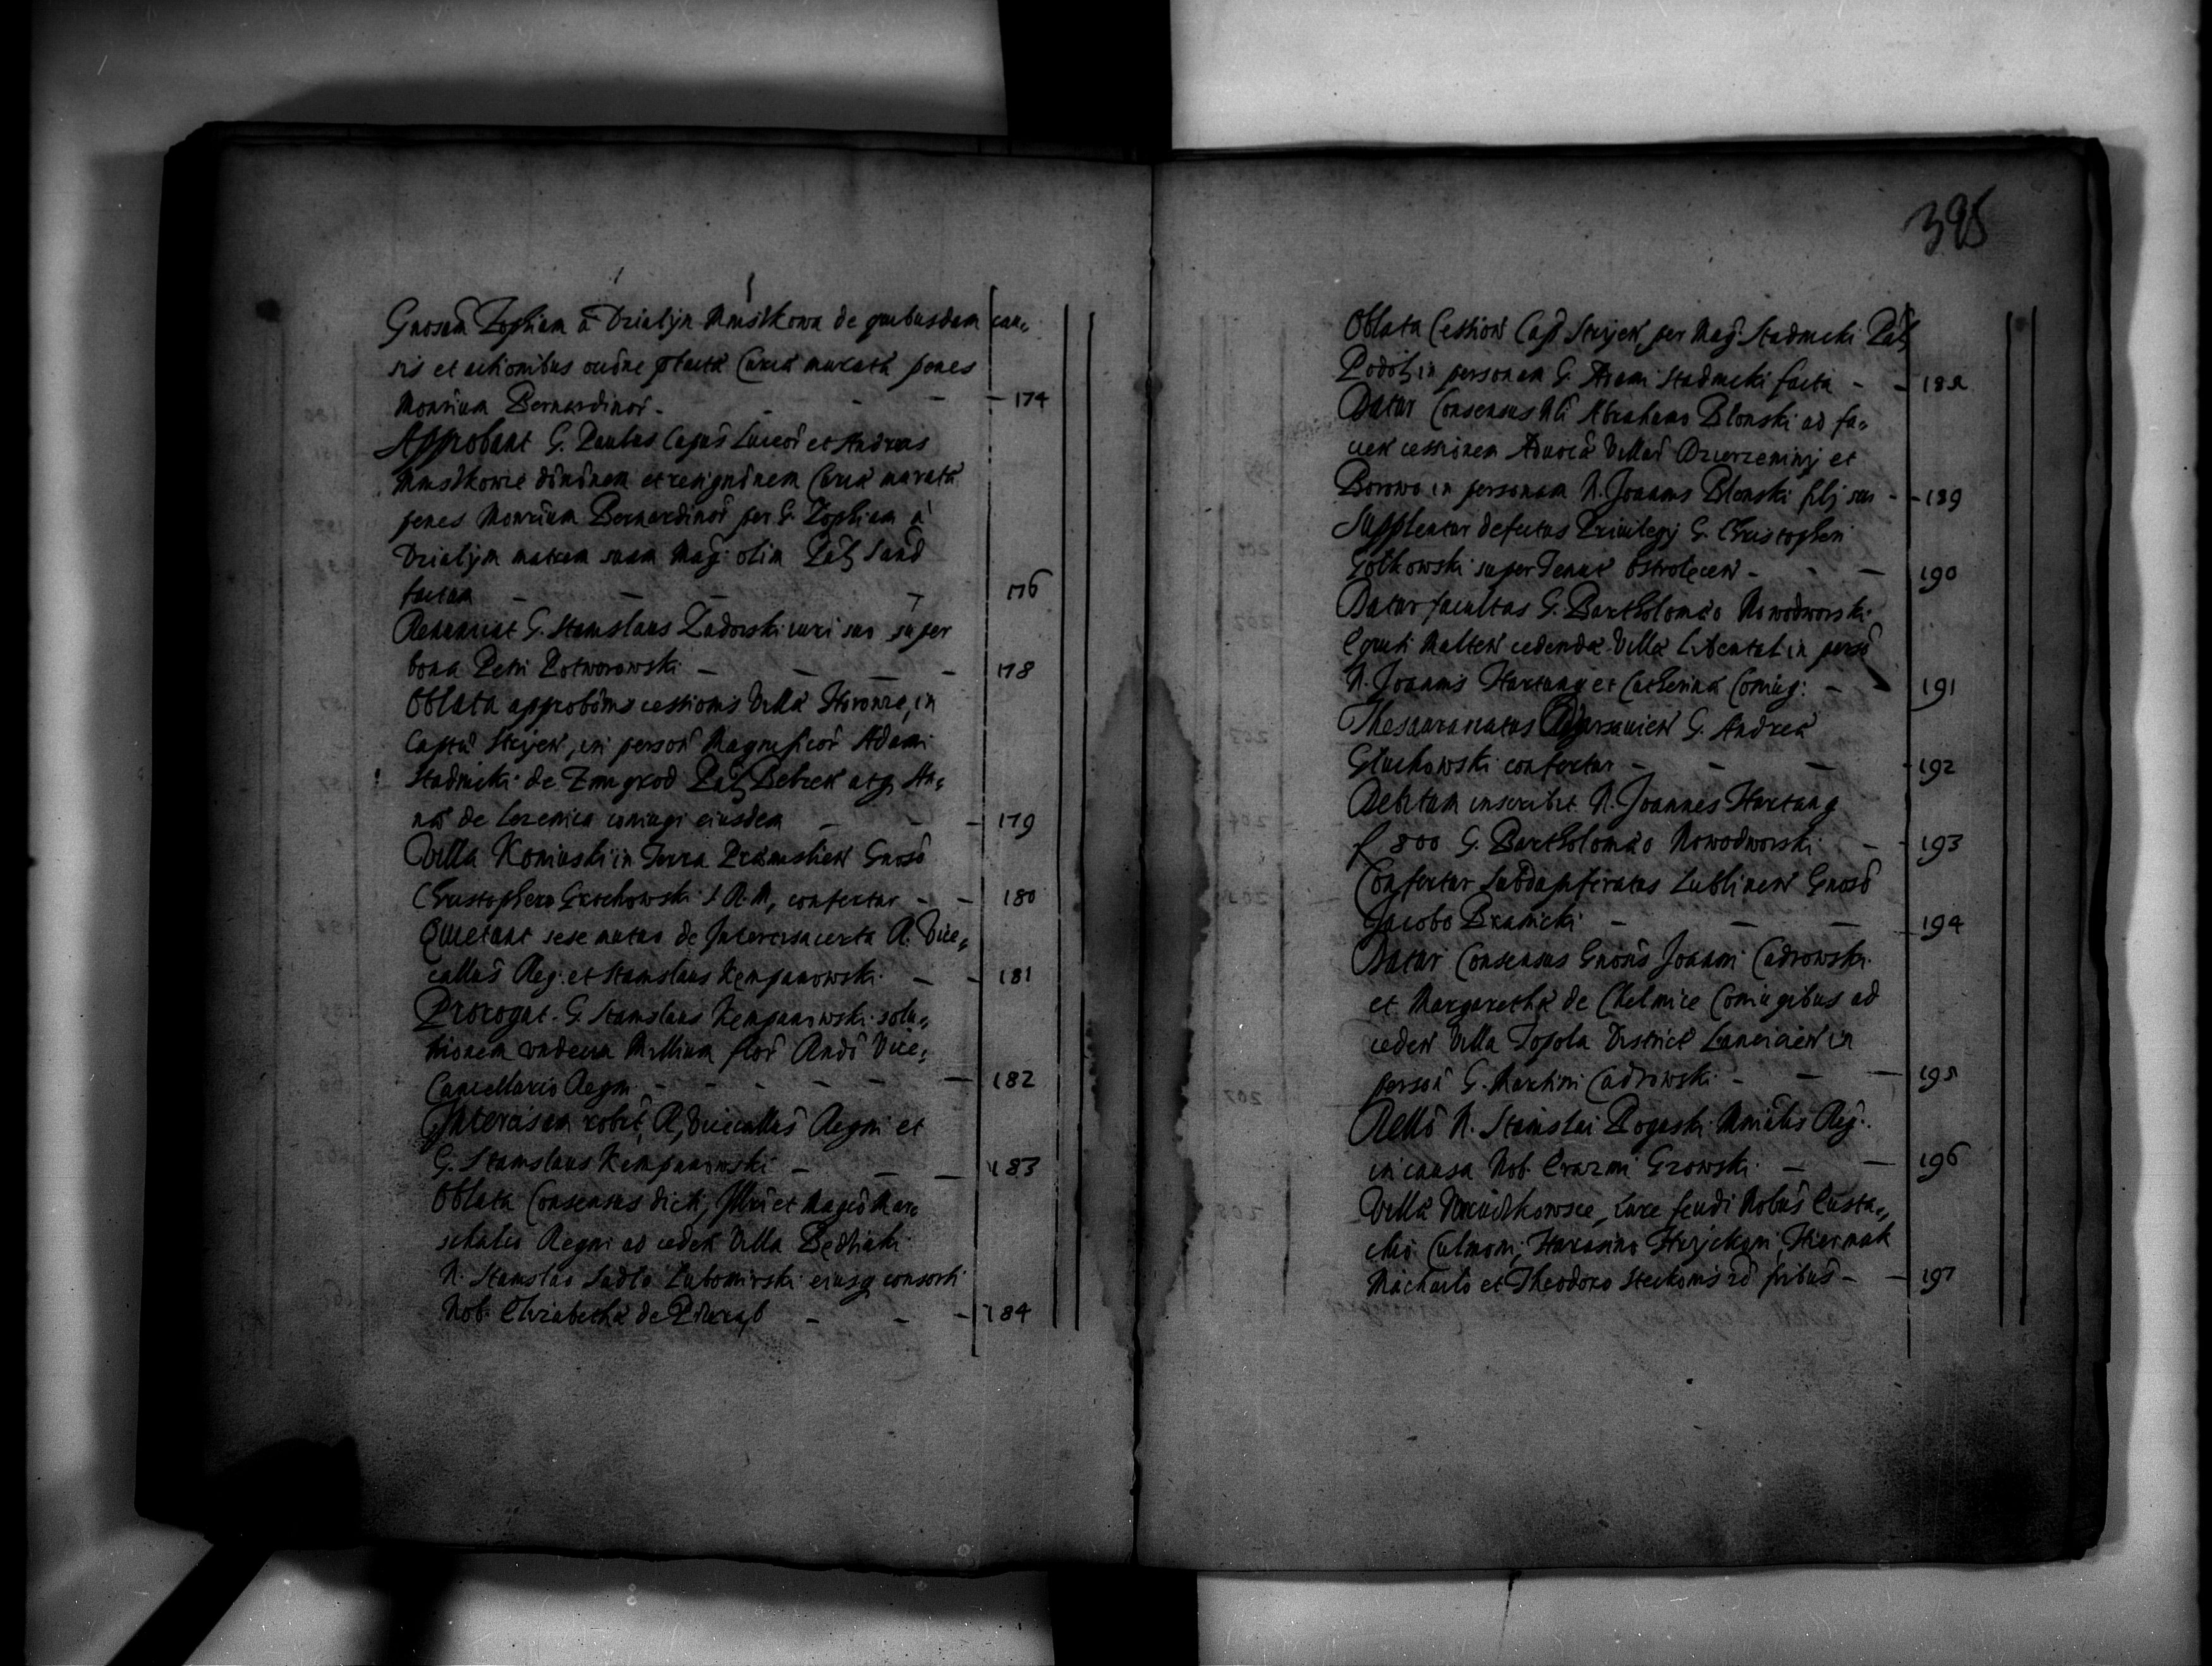 Gnosam Zophiam à Dzialÿn Mniskowa de quibusdam cau=
sis et actionibus oudne Curia murata penes
Monrium Bernardinor. - - - 174
Approbant G. Paulus Capts Luceor et Andreas
Mniskowie donônem et resignônem Curiæ murata
penes Monrium Bernardinor per G. Zophiam à
Dzialÿn matrem suam Mag. olim Pal Sand
factam - - - 176
Renunciat G. Stanislaus Zadorski iuri suo super
bona Petri Potworowski - - - 178
Oblata approbônis cessionis Villæ Horonie, in
Captu Strÿen, in person Magnificor Adami
Stadnicki de Zmÿgrod Pal Belzen atq An=
næ de coniugi eiusdem - - - 179
Villa Koniuski in Terra Præmislien Gnoso
Christophero Grochowski S R M, confertur - - 180
Quietant sese mutuo de Intercisa certa R. Vice=
callus Reg. et Stanislaus Kempanowski - - 181
Prorogat G. Stanislaus Kempanowski solu=
tionem undecim Millium flor Rndo Vice=
Cancellario Regni - - - - - 182
Intercisam robit, R, Vicecallus Regni et
G. Stanislaus Kempanowski - - - 183
Oblata Consensus dicti, Illri et Magco Mar=
schalco Regni ad ceden Villa
N. Stanislao Sadlo Lubomirski eiusq consorti
Nob. Elizabethæ de - - - 184
395
Oblata Cession Cap Strÿen, per Mag. Stadnicki Pal
Podol in personam G. Adami Stadnicki facta - - 188
Datur Consensus Nli Abrahamo Blonski ad fa=
cien cessionem Aduocâ Villar Dzierzeminÿ et
Borowo in personam N. Joannis Blonski filÿ sui - - 189
Suppleatur defectus Priuilegÿ G. Christopheri
Golkowski super Tenut Ostrolecen - - - 190
Datur facultas G. Bartholomæo Nowodworski
Equiti Malten cedendæ Villæ Libental in perso
N. Joannis Hartang et Catherinæ Coniug: - 191
Thesaurariatus Warsauien G. Andreæ
Gluchowski confertur - - - 192
Debitum inscribit N. Joannes Hartang
f 800 G. Bartholomæo Nowodworski - - 193
Confertur Subdapiferatus Lublinen Gnoso
Jacobo Branicki - - - 194
Datur Consensus Gnosis Joanni Cadrowski
et Margarethæ de Chelmice Coniugibus ad
ceden Villa Topola District Lancicien in
person G. Martini Cadrowski - - - 195
Rello N. Stanislai Rogaski Mnialis Reg.
in causa Nob. Erazmi Growski - - 196
Villa iure feudi Nobus Eusta=
chio Culmoni, Harasimo
Michaelo et Theodoro fribus - - 197